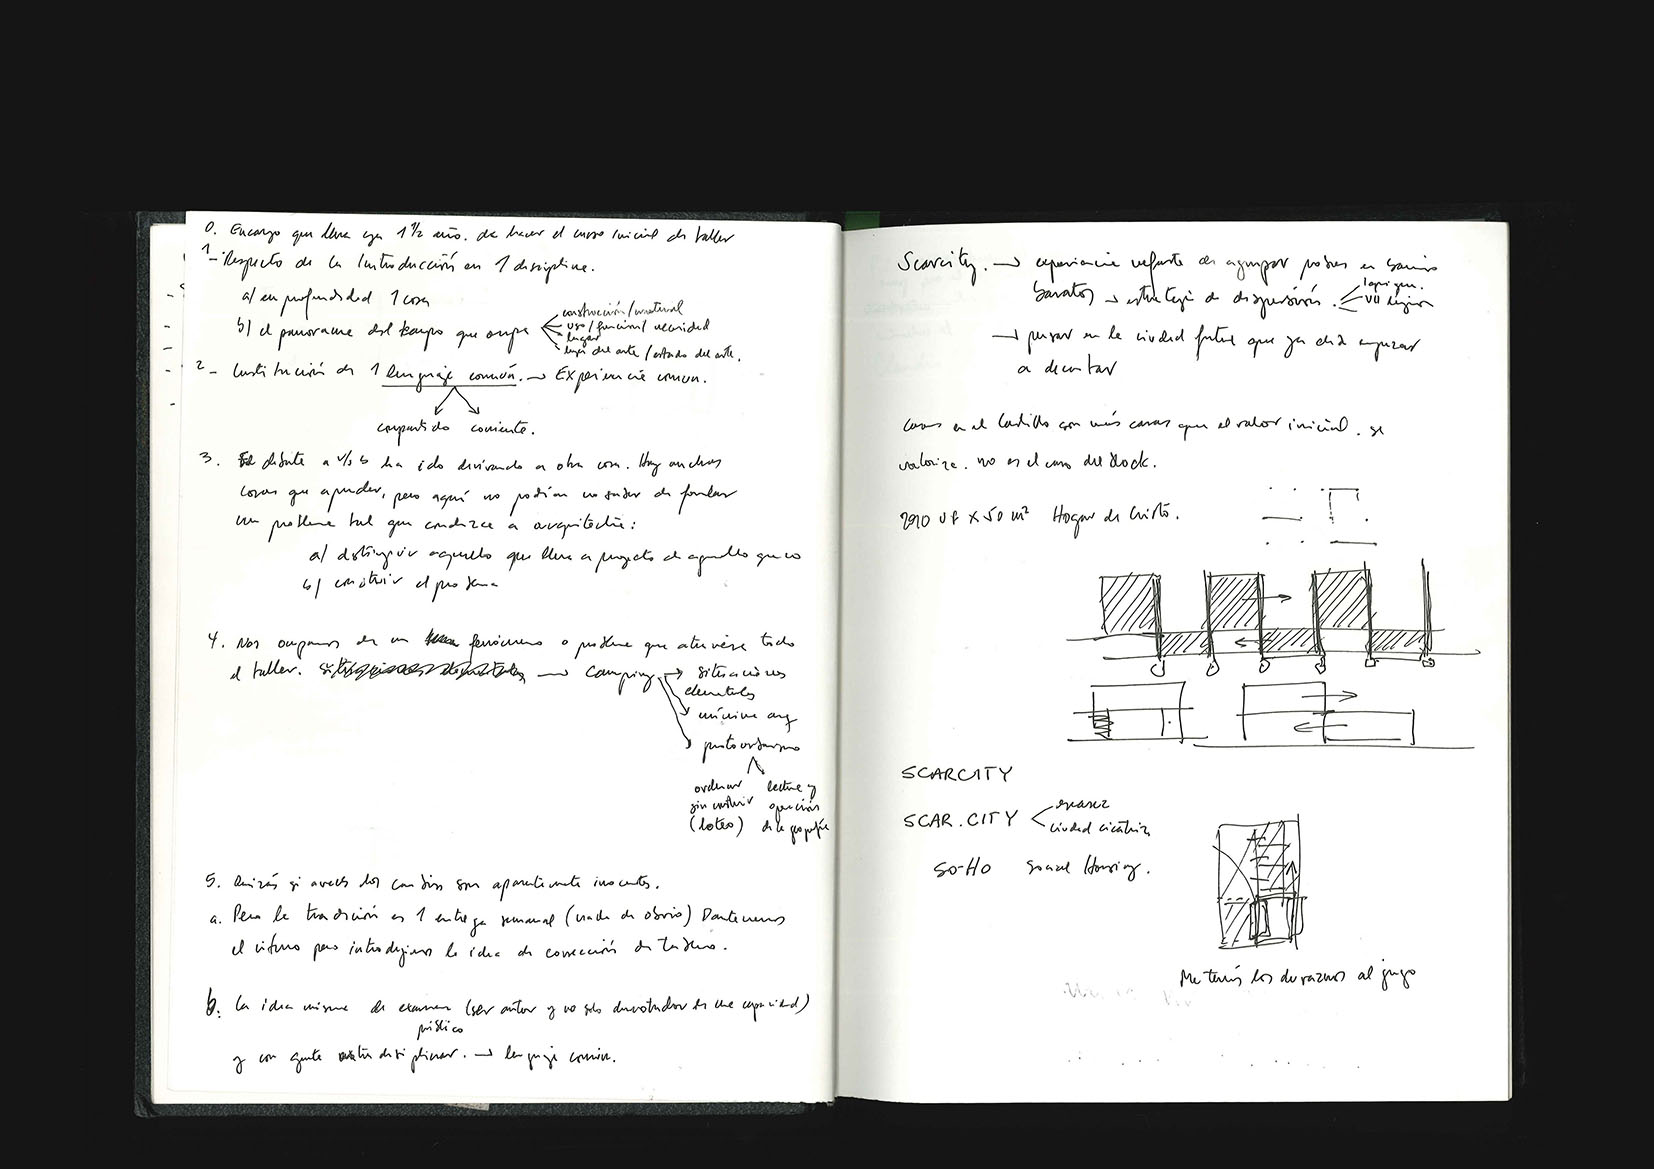 0. Encargo que lleva ya 1 1/2 año. de hacer el curso inicial de taller
1- Respecto de la Introducción en 1 disciplina.
a/ en profundidad 1 cosa
b/ el panorama del campo que ocupa
construcción/material
uso/función/necesidad
lugar
del arte / estado del arte.
2- Constitución de 1 lenguaje común. → Experiencia común.
compartido corriente.
3. El debate a v/s b ha ido derivando a otra cosa. Hay muchas
cosas que aprender, pero aquí no podían no saber de formular
un problema tal que conduzca a arquitectura:
a/ distinguir aquello que lleva a proyecto de aquello que no
b/ construir el problema
4. Nos ocupamos de un fenómeno o problema que atraviese todo
el taller. → Camping → situaciones
elementales
mínimo arq
protourbanismo
ordenar
sin construir
(loteo)
lectura y
operación
de la geografía
5. Quizás si a veces los cambios son aparentemente inocentes.
a. Pero la tradición es 1 entrega semanal (nada de obvio) Mantenemos
el ritmo pero introdujimos la idea de corrección de taller.
b. La idea misma de examen (ser autor y no solo demostrador de una capacidad)
público
y con gente disciplinar. → lenguaje común.
Scarcity. → experiencia nefasta de agrupar pobres en barrios
baratos → estrategia de dispersión.
VII región
→ pensar en la ciudad futura que ya debe empezar
a decantar
casas en el Castillo son más caras que el valor inicial. se
valoriza. no es el caso del block.
290 UF x 50 m² Hogar de Cristo.
SCARCITY
SCAR.CITY
escasez
ciudad cicatriz
SO-HO Social Housing.
Me tenís los duraznos al jugo